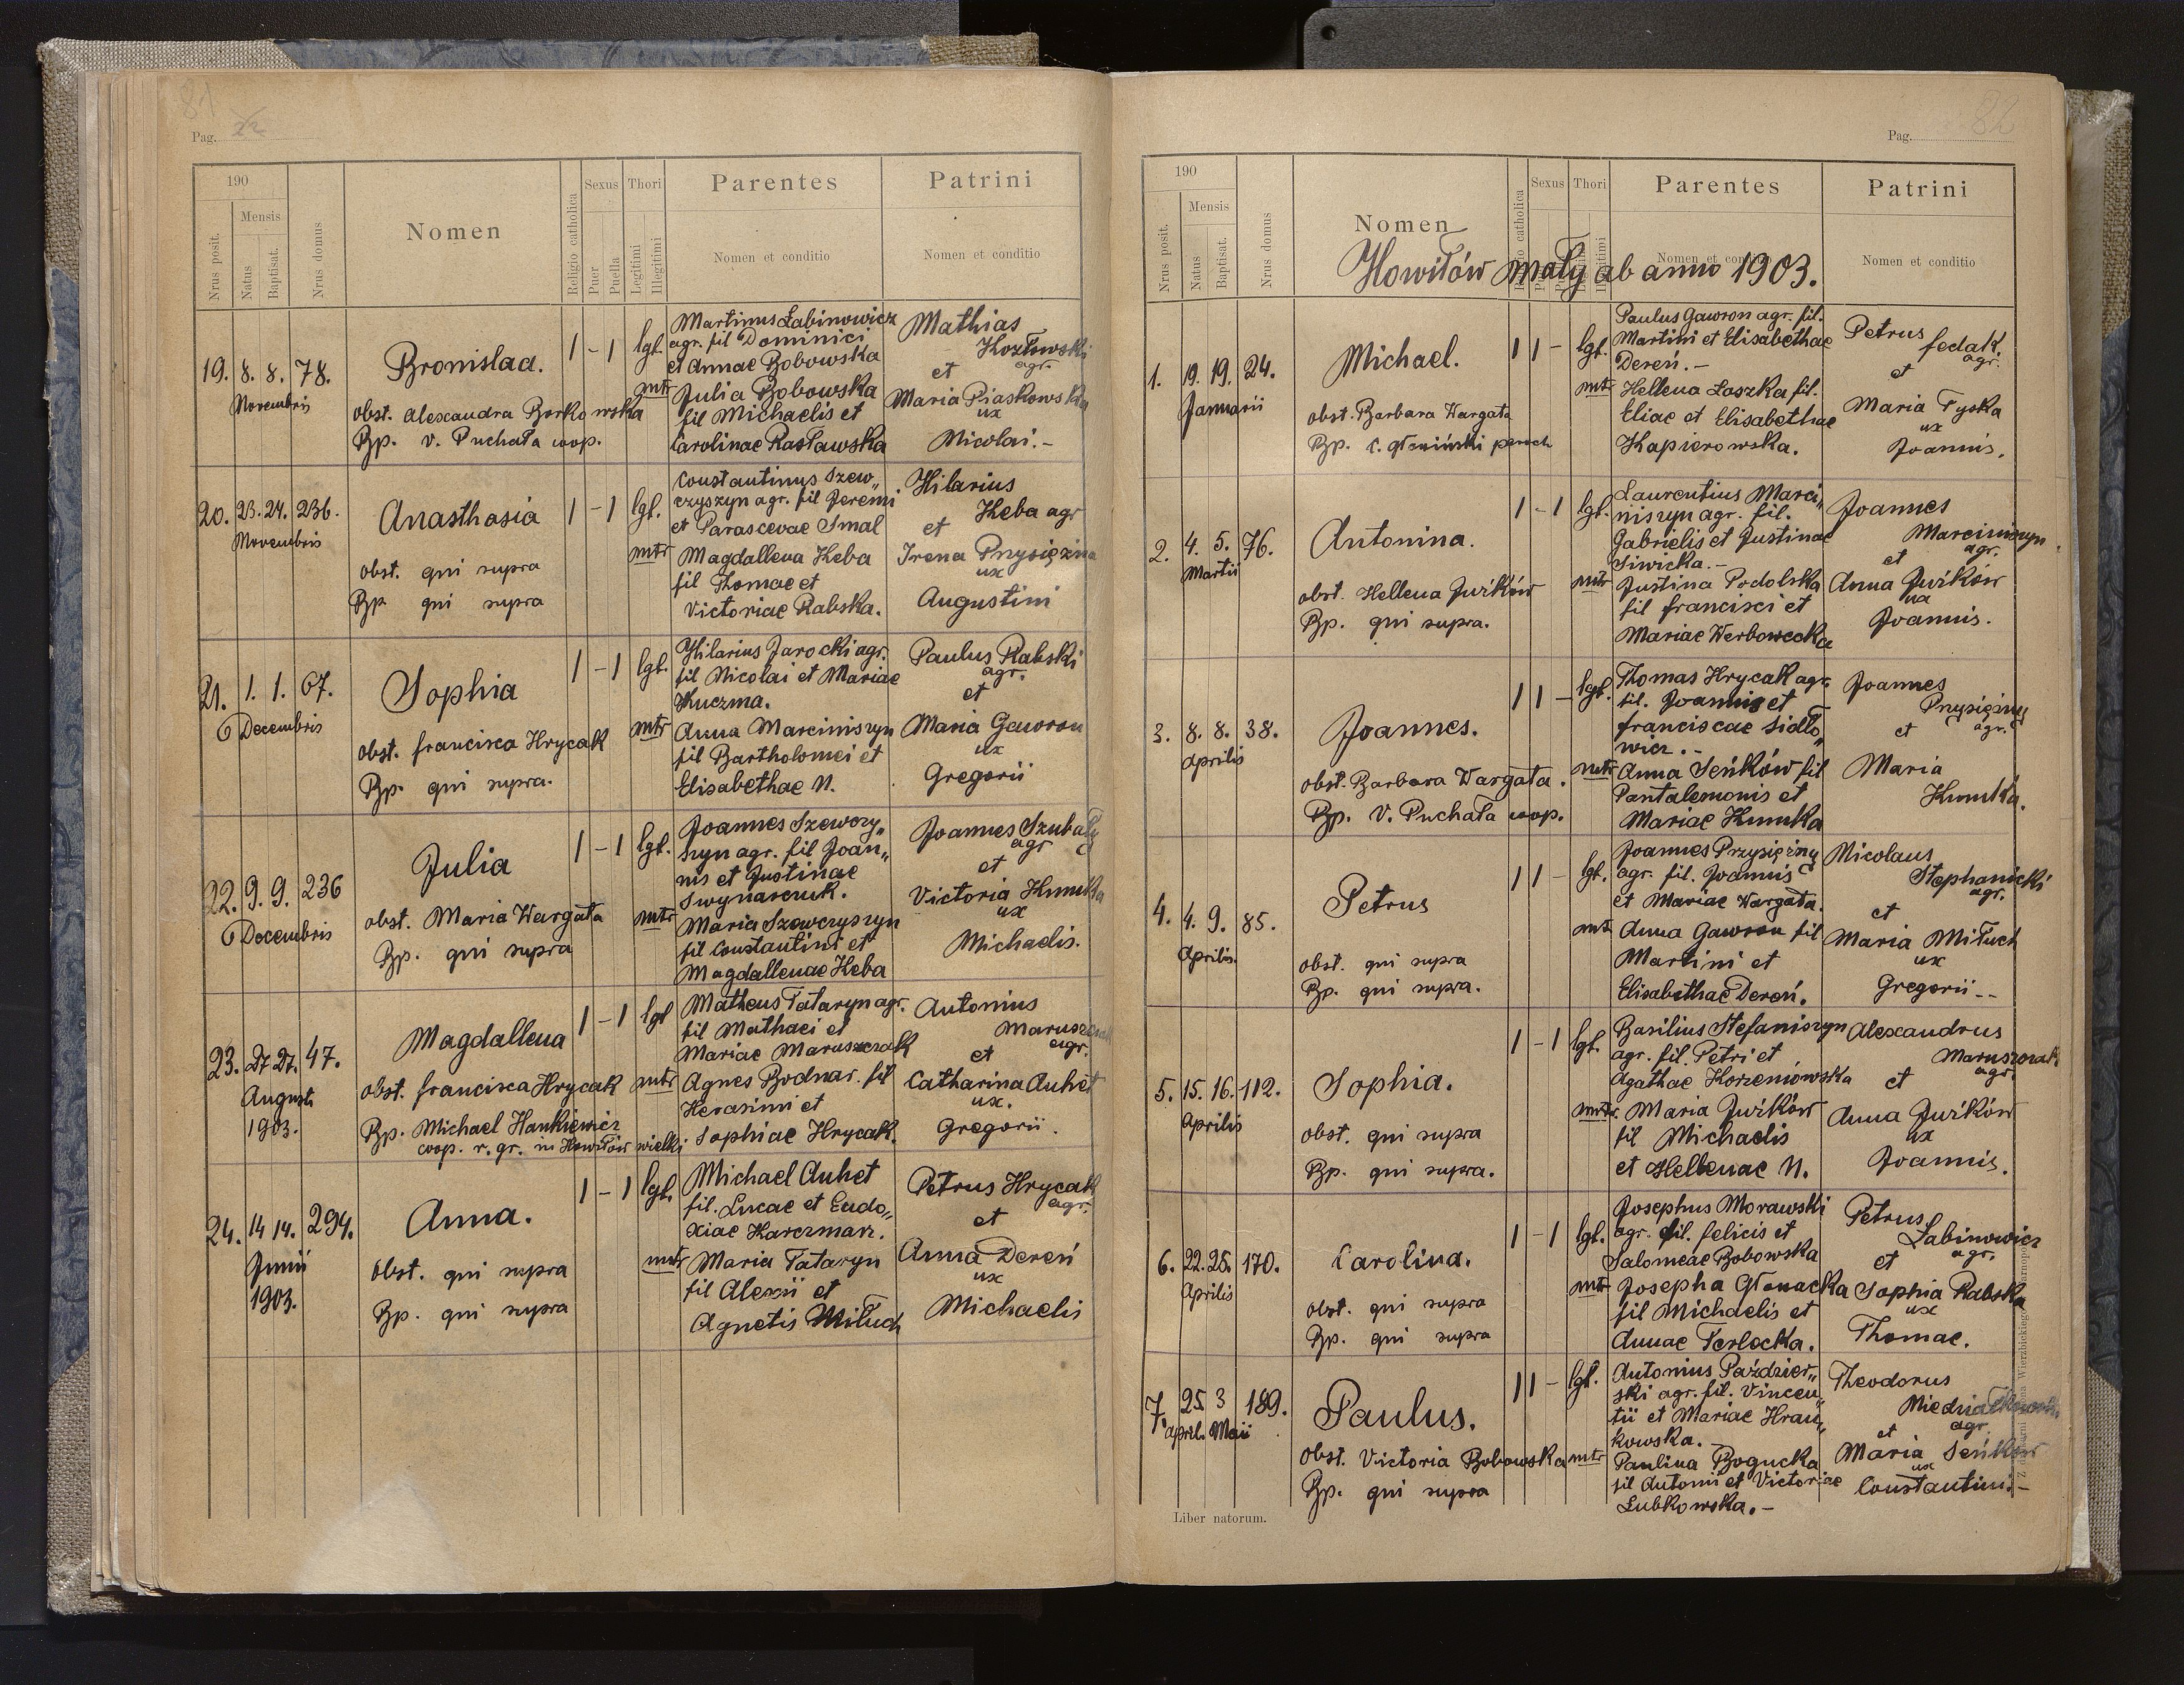 81
Pag.
190
Mensis
Nrus posit.
Natus
Baptisat.
Nrus domus
Nomen
Religio catholica
Sexus
Puer
Puella
Thori
Legitimi
Illegitimi
Parentes
Nomen et conditio
Patrini
Nomen et conditio
19. 8. 8. 78.
Novembris
Bronislaa.
obst. Alexandra Borkowska
Bp. V. Puchała coop.
1 - 1 lgt.
Martinus Łabinowicz
agr. fil Dominici
et Annae Bobowska
mtr Julia Bobowska
fil Michaelis et
Carolinae Rasławska
Mathias
Kozłowski
agr.
et
Maria Piaskowska
ux
Nicolai.-
20. 23. 24. 236.
Novembris
Anasthasia
obst. qui supra
Bp qui supra
1 - 1 lgt.
Constantinus Szew„
czyszyn agr. fil Jeremi
et Parascevae Smal
mtr Magdallena Heba
fil Thomae et
Victoriae Rabska.
Hilarius
Heba agr
et
Irena Przysiężna
ux
Augustini
21. 1. 1. 67.
Decembris
Sophia
obst. Francisca Hrycak
Bp. qui supra.
1 - 1 lgt.
Hilarius Jarocki agr.
fil Nicolai et Mariae
Kuczma.
mtr Anna Marciniszyn
fil Bartholomei et
Elisabethae N.
Paulus Rabski
agr.
et
Maria Gawron
ux
Gregorii
22. 9. 9. 236
Decembris
Julia
obst. Maria Wargata
Bp. qui supra
1 - 1 lgt.
Joannes Szewczy„
szyn agr. fil Joan„
nis et Justinae
Swynarczuk.
mtr Maria Szewczyszyn
fil Constantini et
Magdallenae Heba
Joannes Szubały
agr
et
Victoria Hunka
ux
Michaelis.
23. 27 27. 47.
Augusti
1903.
Magdallena
obst. Francisca Hrycak
Bp. Michael Hankiewicz
coop. r. gr. in Howiłów wielki
1 - 1 lgt
Matheus Tataryn agr.
fil Mathaei et
Mariae Maruszczak
mtr Agnes Bodnar. fil
Herasimi et
Sophiae Hrycak.
Antonius
agr.
et
Catharina Auhet
ux.
Gregorii.
24. 14 14. 294.
Junii
1903.
Anna.
obst. qui supra
Bp. qui supra
1 - 1 lgt.
Michael Auhet
fil. Lucae et Eudo„
xiae Harczmarz.
mtr Maria Tataryn
fil Alexii et
Agnetis Miłuch
Petrus Hrycak
agr.
et
Anna Dereń
ux
Michaelis
82
Pag.
190
Mensis
Nrus posit.
Natus
Baptisat.
Nrus domus
Nomen
Sexus
Thori
Parentes
Patrini
Nomen et conditio
Howiłów mały ab anno 1903.
1. 19. 19. 24.
Januarii
Michael.
obst. Barbara Wargata
Bp. C. Głowiński paroch
1 1 - lgt.
Paulus Gawron agr. fil.
Martini et Elisabethae
Dereń.-
mtr Hellena Łoszka fil.
Eliae et Elisabethae
Kapierowska.
Petrus Fedak.
agr.
et
Maria Tyska
ux
Joannis.
2. 4. 5. 76.
Martii
Antonina.
obst. Hellena Jurków
Bp. qui supra.
1 - 1 lgt.
Laurentius Marci„
niszyn agr. fil.
Gabrielis et Justinae
Siwicka.-
mtr Justina Podolska
fil Francisci et
Mariae Werbowecka
Joannes
Marciniszyn
agr.
et
Anna Jurków
ux
Joannis.
3. 8. 8. 38.
Aprilis
Joannes.
obst. Barbara Wargata.
Bp. V. Puchała coop.
1 1 - lgt.
Thomas Hrycak agr.
fil. Joannis et
Franciscae Sidło„
wicz.-
mtr Anna Seńków fil
Pantalemonis et
Mariae Hunka
Joannes
Przysiężny
agr.
et
Maria
Hunka.
4. 4. 9. 85.
Aprilis.
Petrus
obst. qui supra
Bp. qui supra.
1 1 - lgt.
Joannes Przysiężny
agr. fil. Joannis
et Mariae Wargata.
mtr Anna Gawron fil
Martini et
Elisabethae Dereń.
Nicolaus
Stephanicki
agr.
et
Maria Miłuch
ux
Gregorii--
5. 15. 16. 112.
Aprilis
Sophia.
obst. qui supra
Bp. qui supra.
1 - 1 lgt.
Basilius Stefaniszyn
agr. fil. Petri et
Agathae Korzeniowska
mtr. Maria Jurków
fil Michaelis
et Hellenae N.
Alexandrus
Maruszczak
agr.
et
Anna Jurków
ux
Joannis.
6. 22. 25. 170.
Aprilis
Carolina.
obst. qui supra
Bp. qui supra
1 - 1 lgt.
Josephus Morawski
agr. fil. Felicis et
Salomeae Bobowska
mtr Josepha Głowacka
fil Michaelis et
Annae Terlecka.
Petrus
Łabinowicz
agr.
et
Sophia Rabska
ux
Thomae.
7. 25 3 189.
April. Maii
Paulus.
obst. Victoria Bobowska
Bp. qui supra
1 1 - lgt.
Antonius Paździer„
ski agr. fil. Vincen„
tii et Mariae Hran„
kowska.-
mtr Paulina Bogucka
fil Antonii et Victoriae
Lubkowska.-
Theodorus
agr
et
Maria Seńków
ux
Constantini.-
Liber natorum.